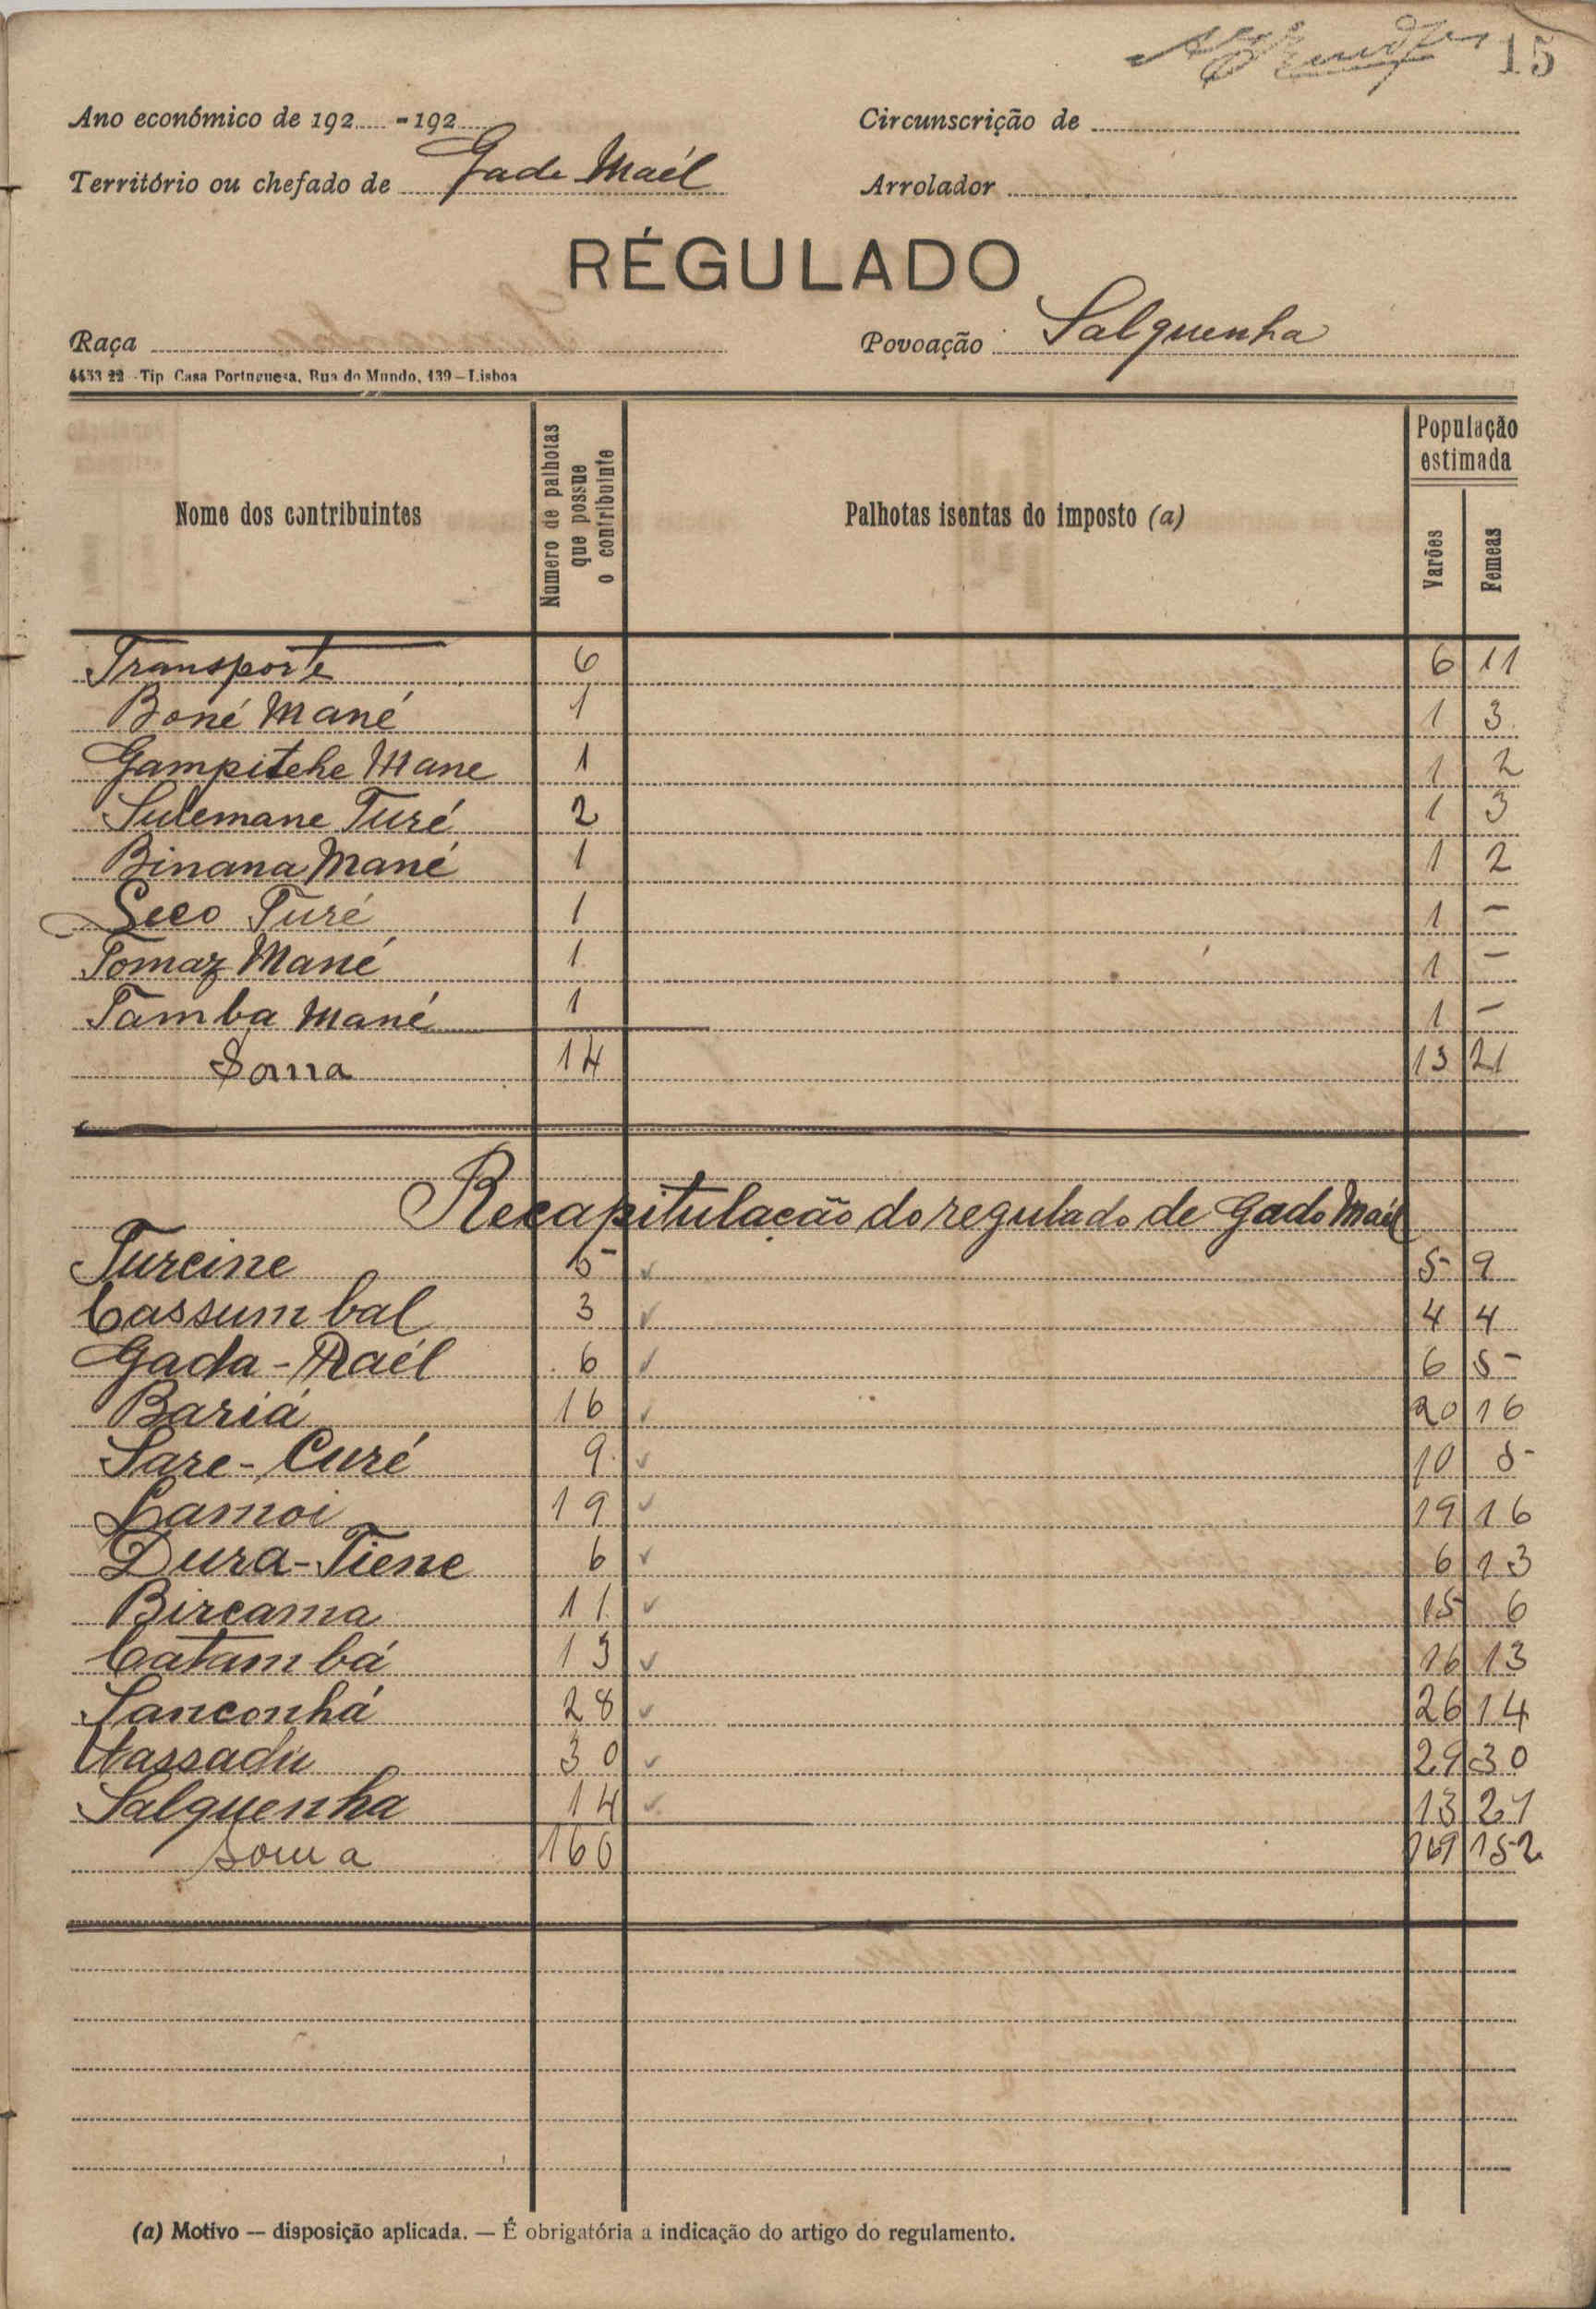 15
Ano económico de 192..... - 192.....
Circunscrição de
Território ou chefado de Gade Maél
Arrolador
RÉGULADO
Raça
Povoação Salquenha
4453 22 - Tip Casa Portuguesa, Rua do Mundo, 139 – Lisboa
Nome dos contribuintes
Numero de palhotas que possue o contribuinte
Palhotas isentas do imposto (a)
População estimada
Varões
Femeas
Transporte 6 6 11
Boné Mané 1 1 3
Gampitehe Mane 1 1 2
Sulemane Turé 2 1 3
Binana Mané 1 1 2
Seco Turé 1 1 –
Tomaz Mané 1 1 –
Tamba Mané 1 1 –
Soma 14 13 21
Recapitulação do regulado de Gado Maél
Turcine 5 5 9
Cassumbal 3 4 4
Gada - Maél 6 6 5
Bariá 16 20 16
Sare - Curé 9 10 5
Lamoi 19 19 16
Dura - Tiene 6 6 13
Bircama 11 15 6
Catambá 13 16 13
Sanconhá 28 26 14
30 29 30
Salquenha 14 13 21
Soma 160 169 152
(a) Motivo — disposição aplicada. — É obrigatória a indicação do artigo do regulamento.